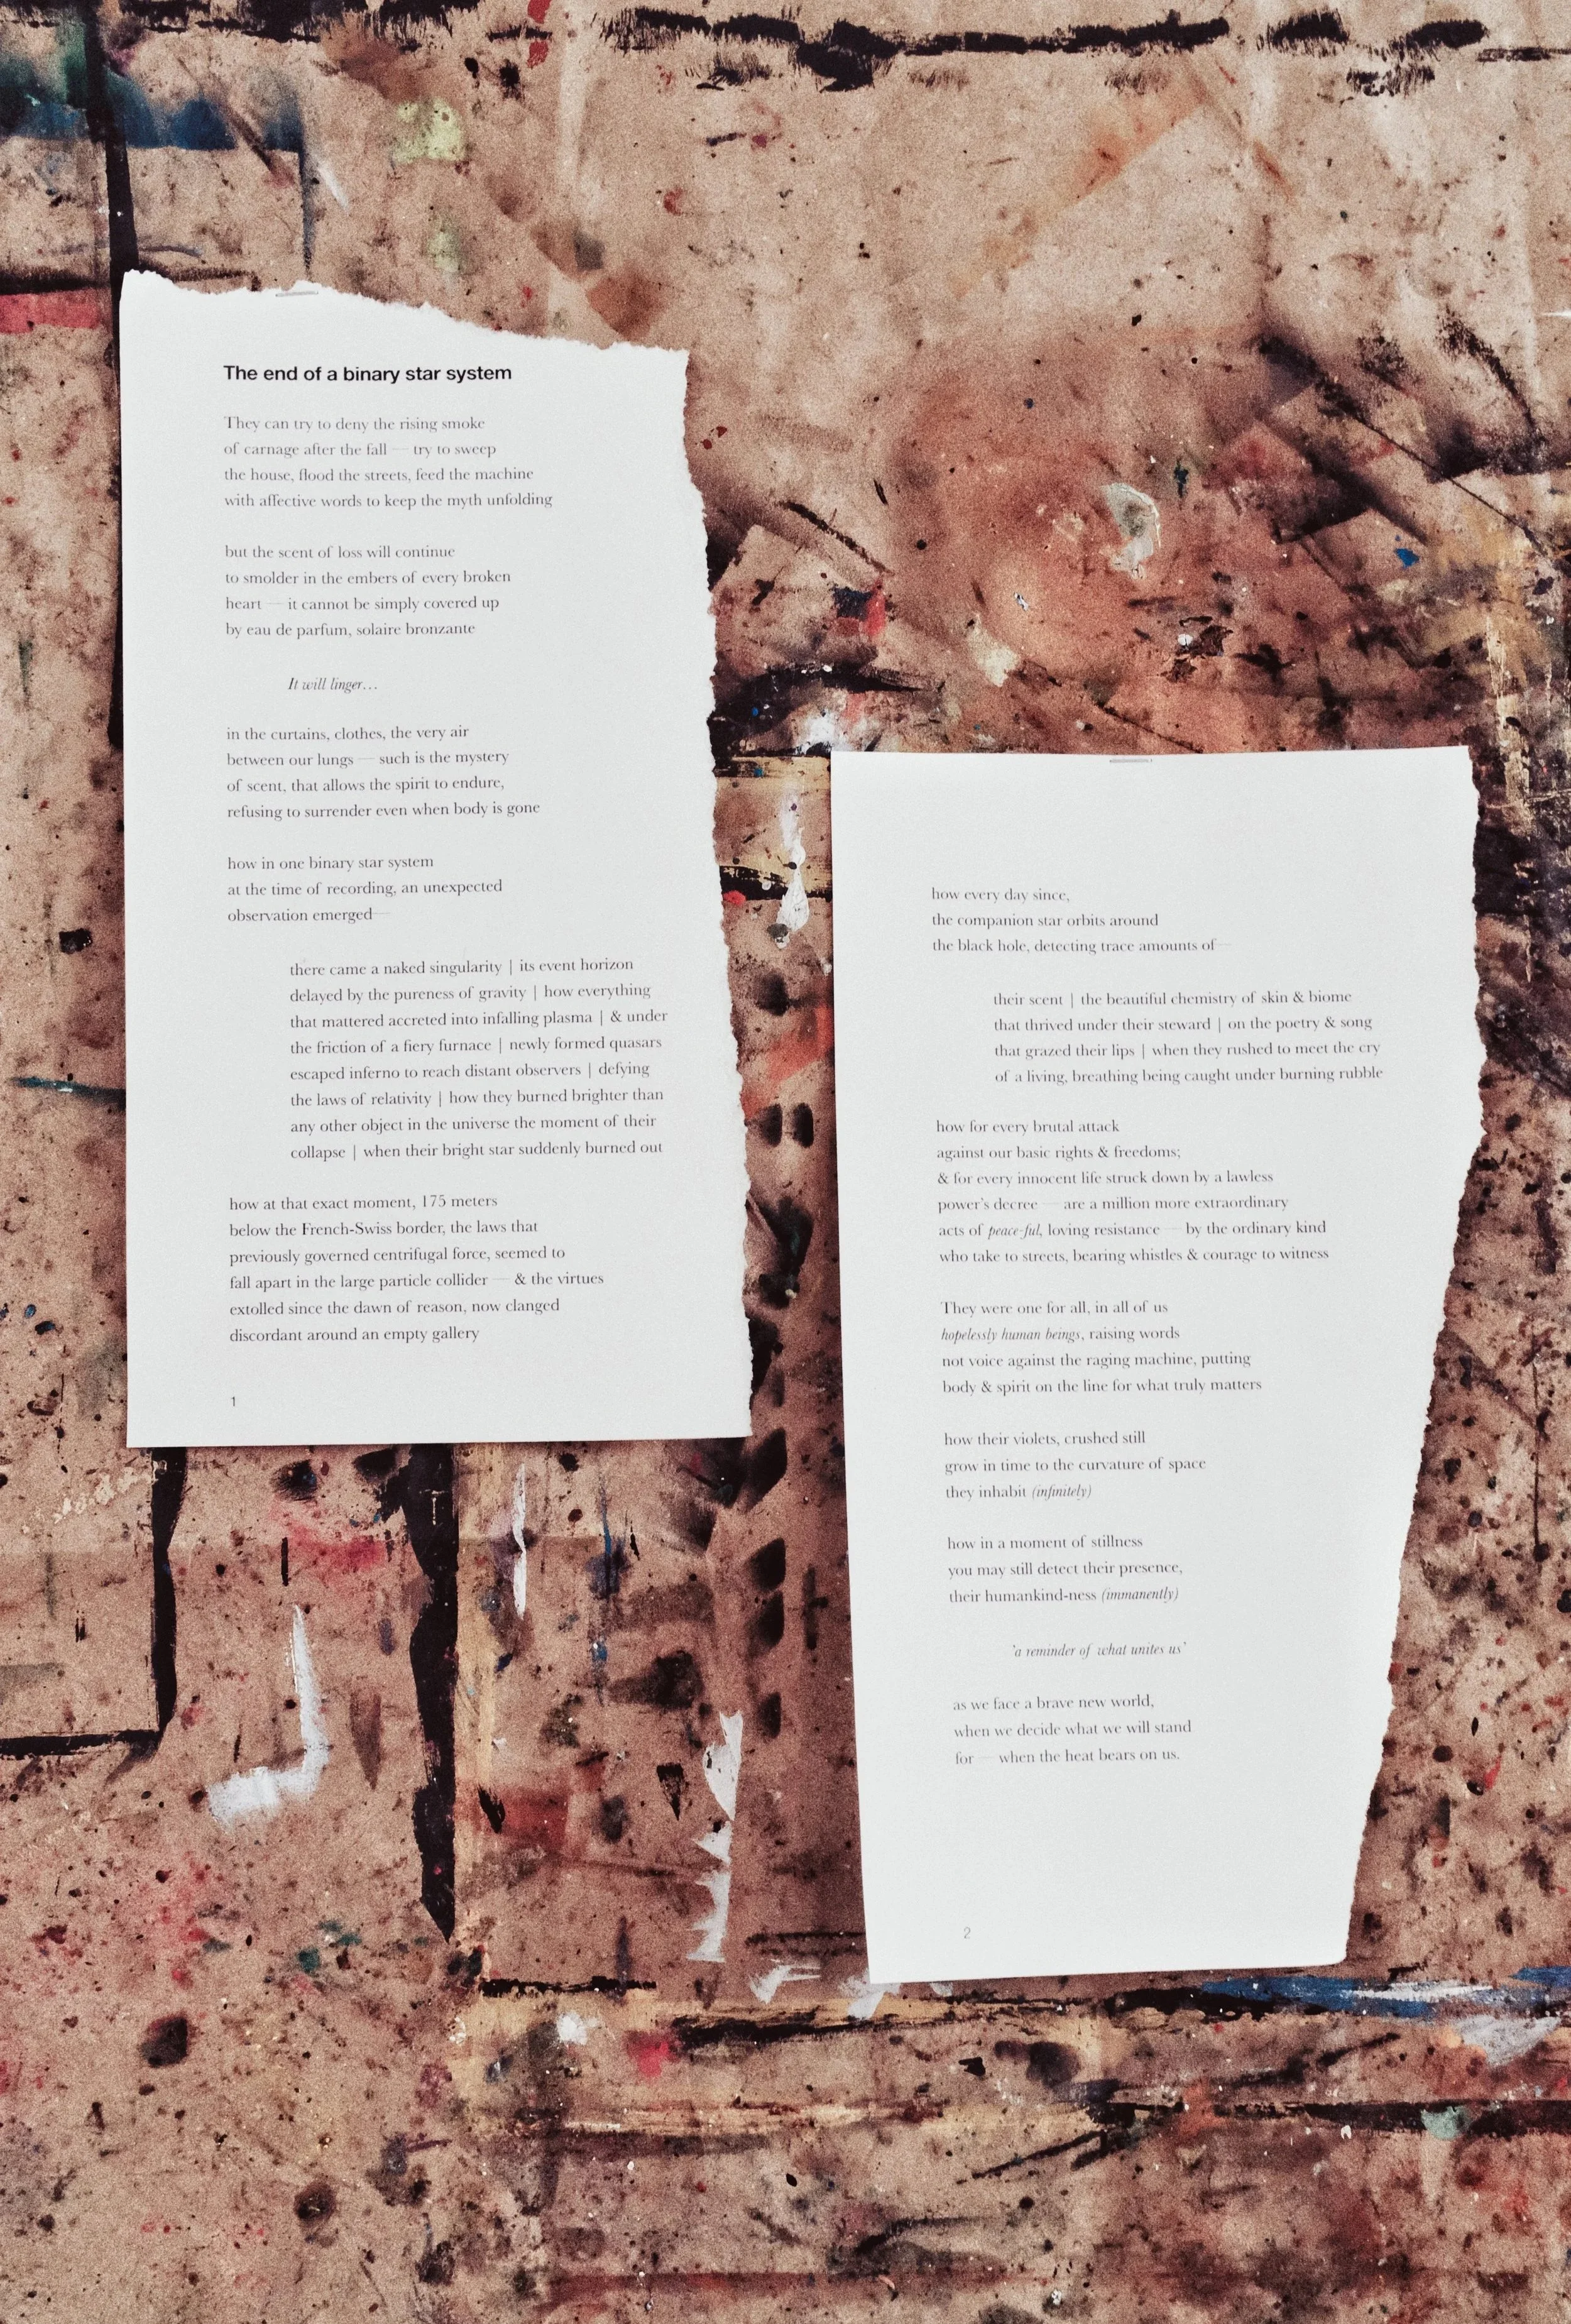 The end of a binary star system
They can try to deny the rising smoke
of carnage after the fall — try to sweep
the house, flood the streets, feed the machine
with affective words to keep the myth unfolding
but the scent of loss will continue
to smolder in the embers of every broken
heart — it cannot be simply covered up
by eau de parfum, solaire bronzante
It will linger…
in the curtains, clothes, the very air
between our lungs — such is the mystery
of scent, that allows the spirit to endure,
refusing to surrender even when body is gone
how in one binary star system
at the time of recording, an unexpected
observation emerged—
there came a naked singularity | its event horizon
delayed by the pureness of gravity | how everything
that mattered accreted into infalling plasma | & under
the friction of a fiery furnace | newly formed quasars
escaped inferno to reach distant observers | defying
the laws of relativity | how they burned brighter than
any other object in the universe the moment of their
collapse | when their bright star suddenly burned out
how at that exact moment, 175 meters
below the French-Swiss border, the laws that
previously governed centrifugal force, seemed to
fall apart in the large particle collider — & the virtues
extolled since the dawn of reason, now clanged
discordant around an empty gallery
1
how every day since,
the companion star orbits around
the black hole, detecting trace amounts of—
their scent | the beautiful chemistry of skin & biome
that thrived under their steward | on the poetry & song
that grazed their lips | when they rushed to meet the cry
of a living, breathing being caught under burning rubble
how for every brutal attack
against our basic rights & freedoms;
& for every innocent life struck down by a lawless
power's decree — are a million more extraordinary
acts of peace-ful, loving resistance — by the ordinary kind
who take to streets, bearing whistles & courage to witness
They were one for all, in all of us
hopelessly human beings, raising words
not voice against the raging machine, putting
body & spirit on the line for what truly matters
how their violets, crushed still
grow in time to the curvature of space
they inhabit (infinitely)
how in a moment of stillness
you may still detect their presence,
their humankind-ness (immanently)
'a reminder of what unites us'
as we face a brave new world,
when we decide what we will stand
for — when the heat bears on us.
2